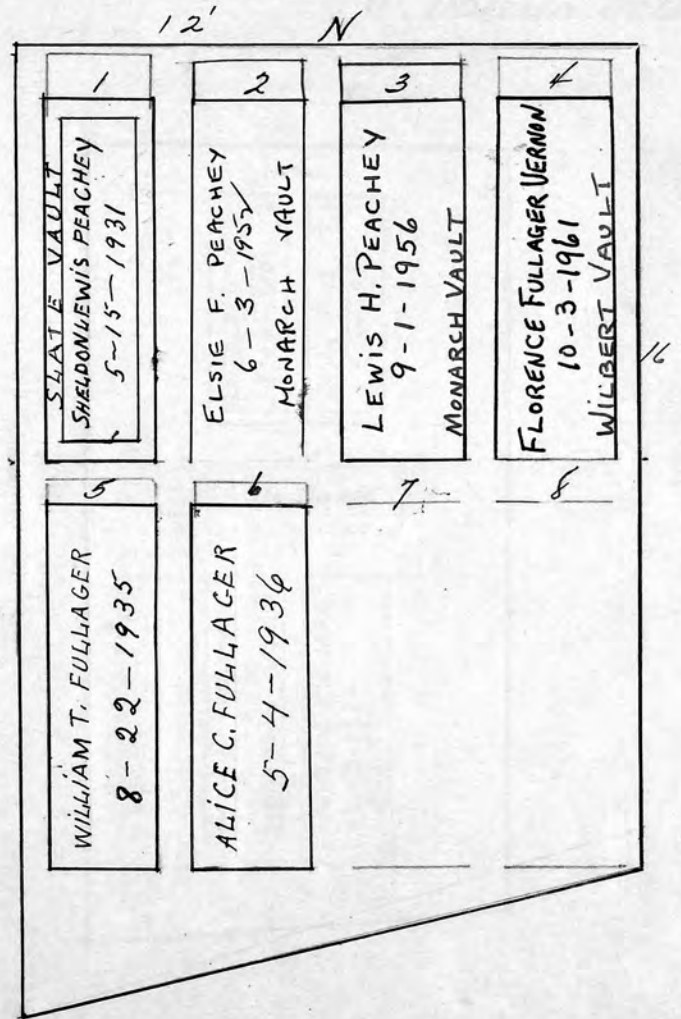 12' N
1
SLATE VAULT
SHELDON LEWIS PEACHEY
5-15-1931
2
ELSIE F. PEACHEY
6-3-1952
MONARCH VAULT
3
LEWIS H. PEACHEY
9-1-1956
MONARCH VAULT
4
FLORENCE FULLAGER VERNON
10-3-1961
WILBERT VAULT
16
5
WILLIAM T. FULLAGER
8-22-1935
6
ALICE C. FULLAGER
5-4-1936
7
8